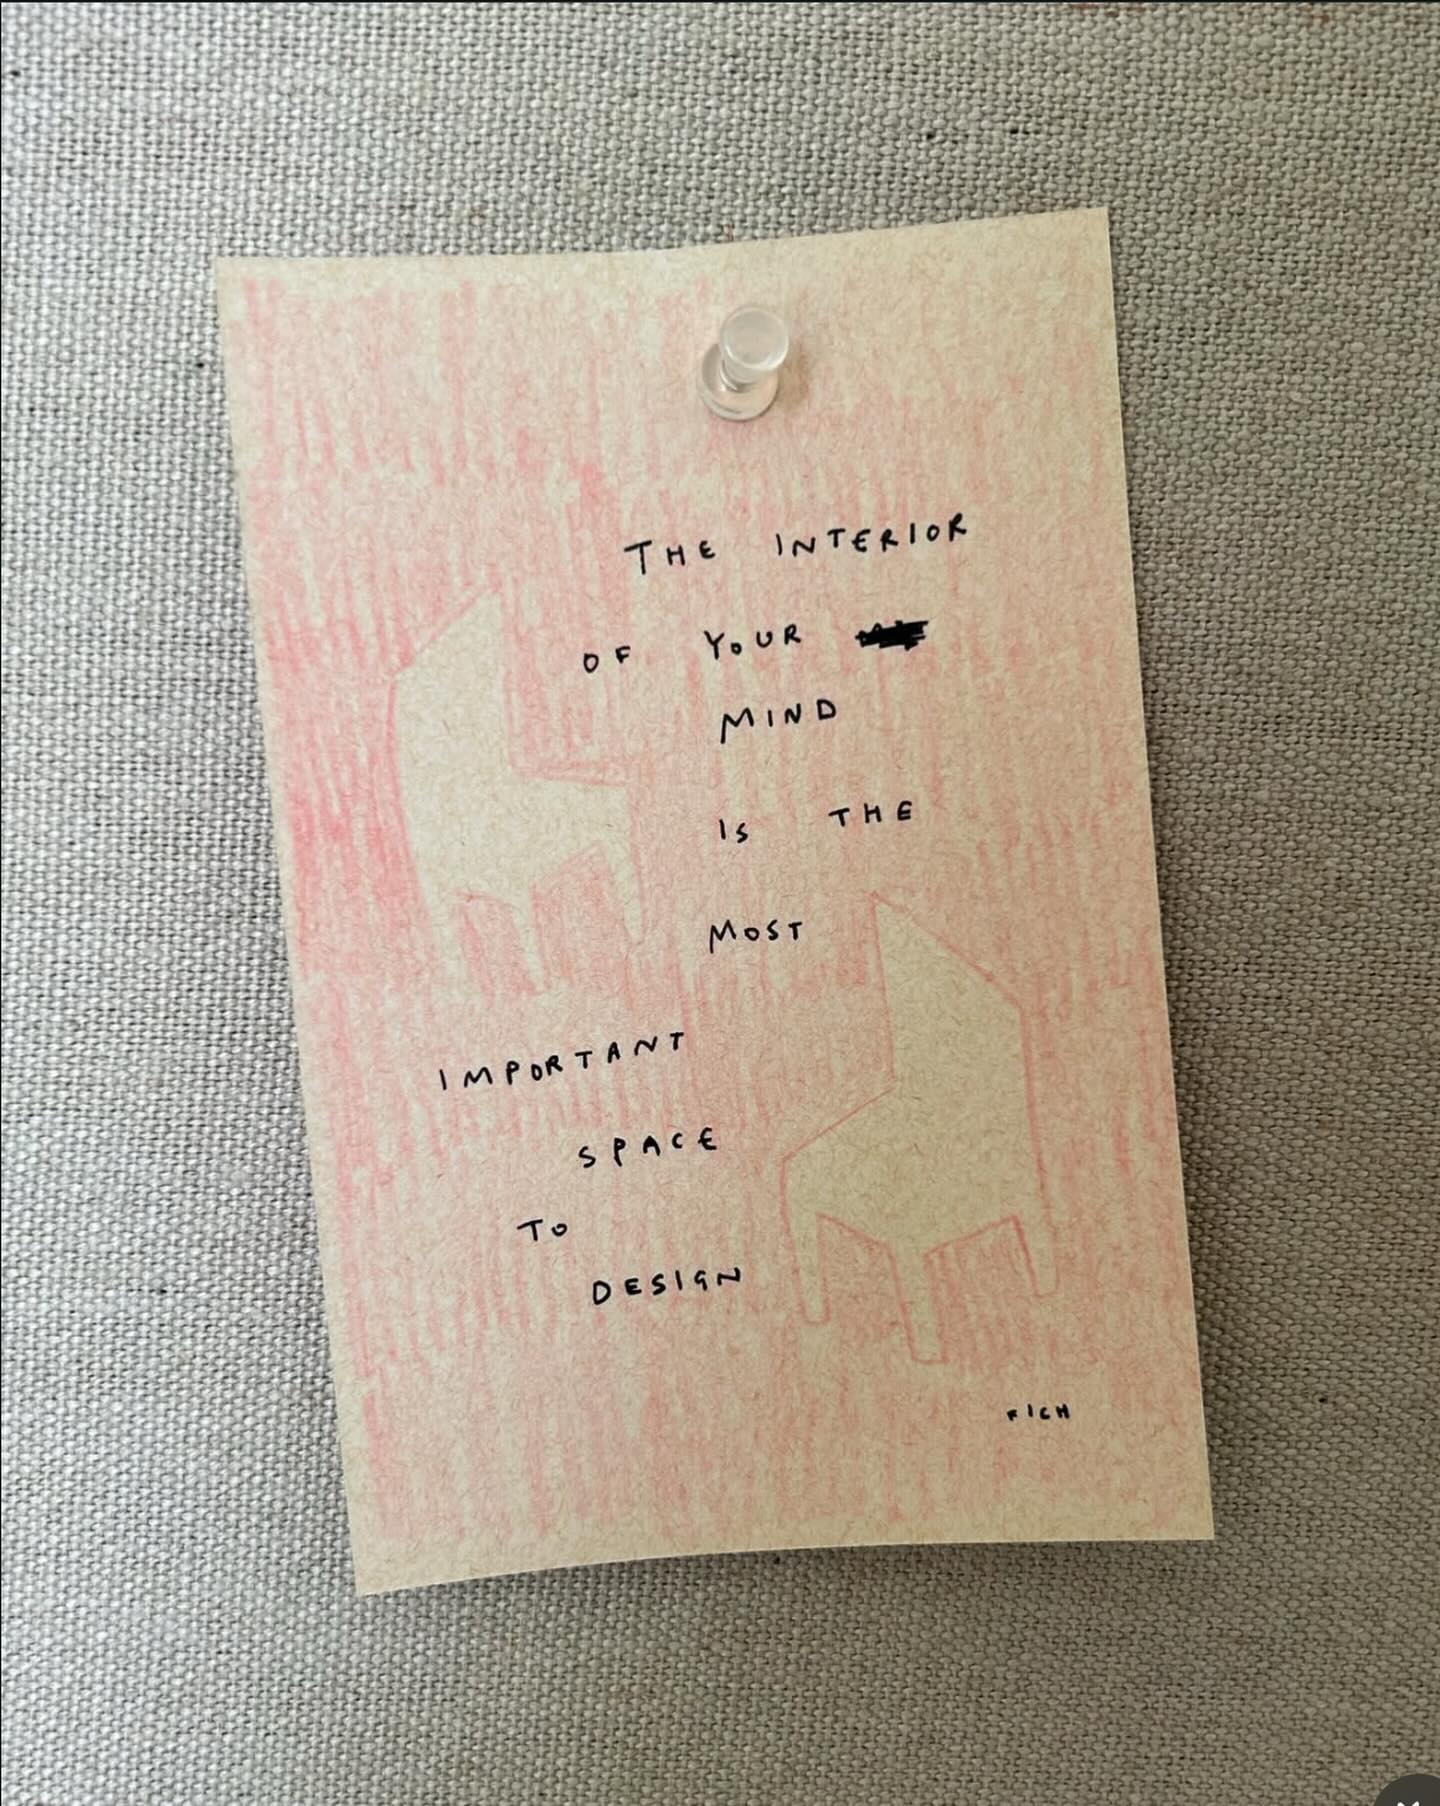 THE INTERIOR
OF YOUR
MIND
IS THE
MOST
IMPORTANT
SPACE
TO
DESIGN